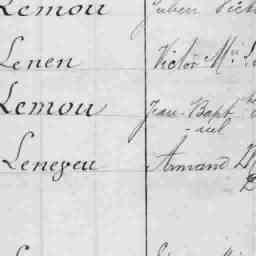 Lemou Julien Vict
Lenen Victor M
Lemou Jean Bapt
-iel
Lenegeu Armand D